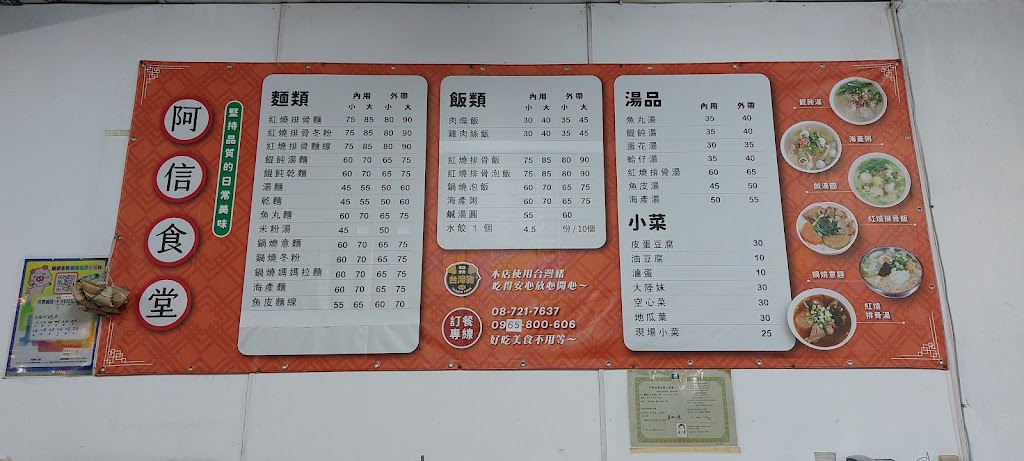 阿信食堂
堅持品質的日常美味
麵類 內用 外帶
小 大 小 大
紅燒排骨麵 75 85 80 90
紅燒排骨冬粉 75 85 80 90
紅燒排骨麵線 75 85 80 90
餛飩湯麵 60 70 65 75
餛飩乾麵 60 70 65 75
湯麵 45 55 50 60
乾麵 45 55 50 60
魚丸麵 60 70 65 75
米粉湯 45 50
鍋燒意麵 60 70 65 75
鍋燒冬粉 60 70 65 75
鍋燒媽媽拉麵 60 70 65 75
海產麵 60 70 65 75
魚皮麵線 55 65 60 70
飯類 內用 外帶
小 大 小 大
肉燥飯 30 40 35 45
雞肉絲飯 30 40 35 45
紅燒排骨飯 75 85 80 90
紅燒排骨泡飯 75 85 80 90
鍋燒泡飯 60 70 65 75
海產粥 60 70 65 75
鹹湯圓 55 60
水餃 1 個 4.5 份/10個
台灣豬
本店使用台灣豬
吃得安心放心開心～
訂餐專線
08-721-7637
0965-800-606
好吃美食不用等～
湯品 內用 外帶
魚丸湯 35 40
餛飩湯 35 40
蛋花湯 30 35
蛤仔湯 35 40
紅燒排骨湯 60 65
魚皮湯 45 50
海產湯 50 55
小菜
皮蛋豆腐 30
油豆腐 10
滷蛋 10
大陸妹 30
空心菜 30
地瓜葉 30
現場小菜 25
餛飩湯
海產粥
鹹湯圓
紅燒排骨飯
鍋燒意麵
紅燒
排骨湯